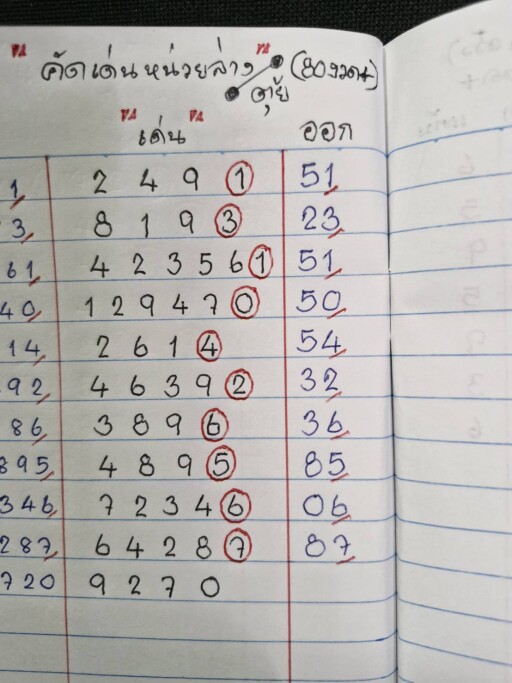 คัดเด่นหน่วยล่าง (80งวด+)
ตุ้ย
เด่น ออก
1 2 4 9 1 51
3 8 1 9 3 23
61 4 2 3 5 6 1 51
40 1 2 9 4 7 0 50
14 2 6 1 4 54
92 4 6 3 9 2 32
86 3 8 9 6 36
895 4 8 9 5 85
346 7 2 3 4 6 06
287 6 4 2 8 7 87
720 9 2 7 0